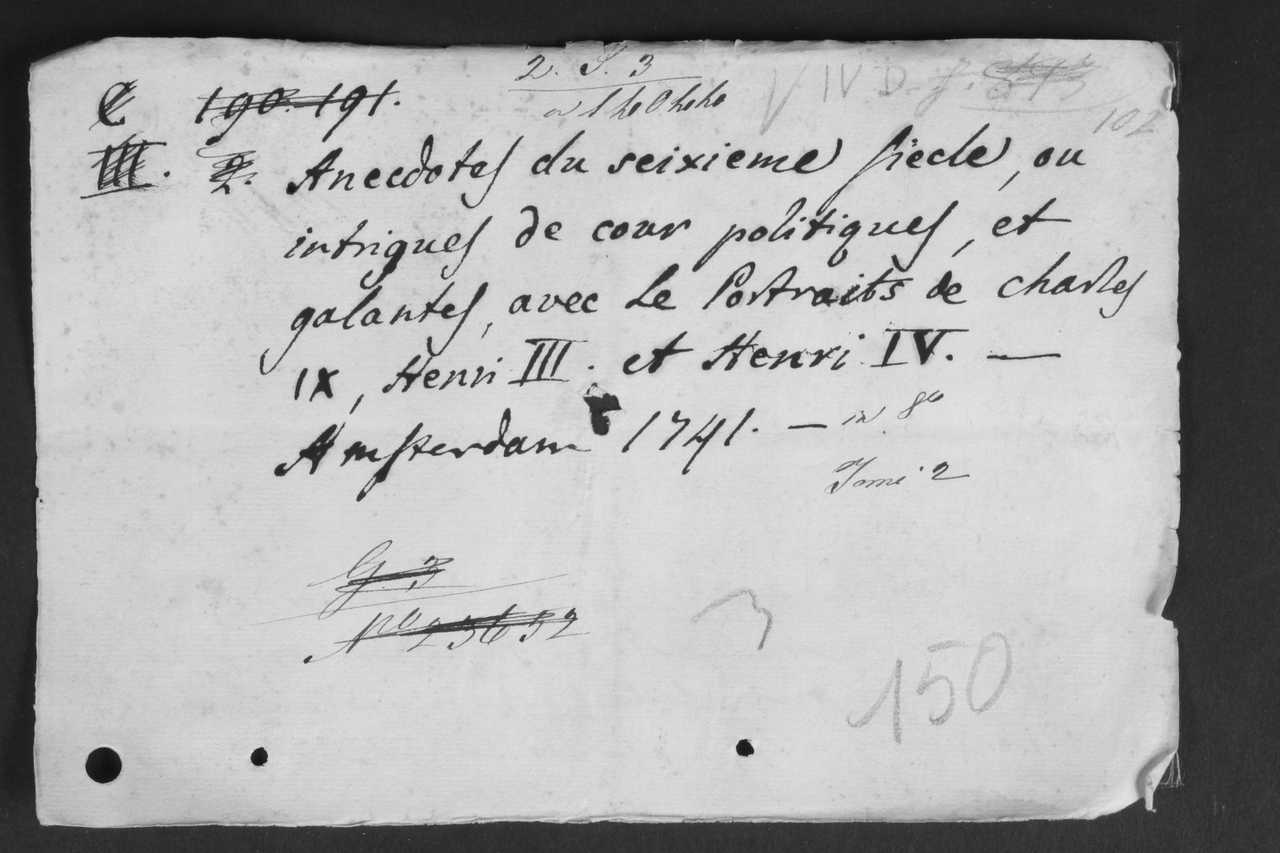 2. S. 3
190. 191.
102
III. 2. Anecdotes du seixieme siecle, ou
intrigues de cour politiques, et
galantes, avec Le Portraits de Charles
IX, Henri III. et Henri IV. —
Amsterdam 1741. — in 8o
Tomi 2
G. 3
No 23632
3
150